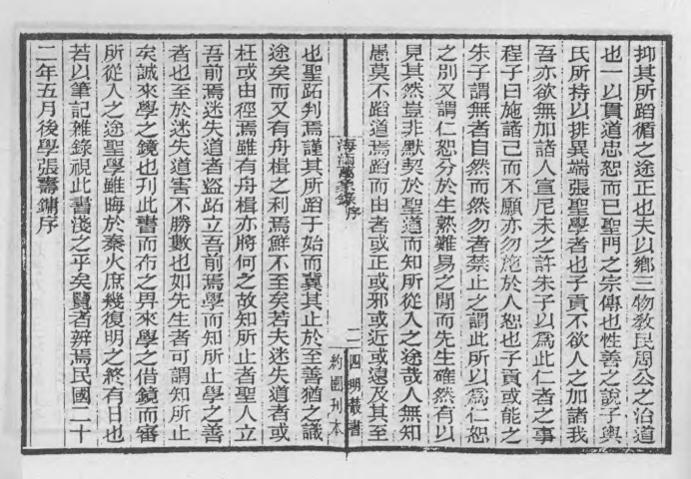 抑其所蹈循之途正也夫以鄉三物敎民周公之治道
也一以貫道忠恕而已聖門之宗傳也性善之說子輿
氏所持以排異端張聖學者也子貢不欲人之加諸我
吾亦欲無加諸人宣尼未之許朱子以爲此仁者之事
程子曰施諸己而不願亦勿施於人恕也子貢或能之
朱子謂無者自然而然勿者禁止之謂此所以爲仁恕
之別又謂仁恕分於生熟難易之閒而先生確然有以
見其然豈非默契於聖道而知所從入之途哉人無知
愚莫不蹈道焉蹈而由者或正或邪或近或遠及其至
海涵萬象錄序
二
四明叢書
約園刊本
也聖跖判焉謹其所蹈于始而冀其止於至善猶之識
途矣而又有舟楫之利焉鮮不至矣若夫迷失道者或
枉或由徑焉雖有舟楫亦將何之故知所止者聖人立
吾前焉迷失道者盜跖立吾前焉學而知所止學之善
者也至於迷失道害不勝數也如先生者可謂知所止
矣誠來學之鏡也刊此書而布之畀來學之借鏡而審
所從入之途聖學雖晦於秦火庶幾復明之終有日也
若以筆記雜錄視此書淺之乎矣覽者辨焉民國二十
二年五月後學張壽鏞序